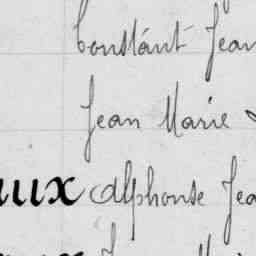 Constant Jean
Jean Marie
aux Alphonse Jea